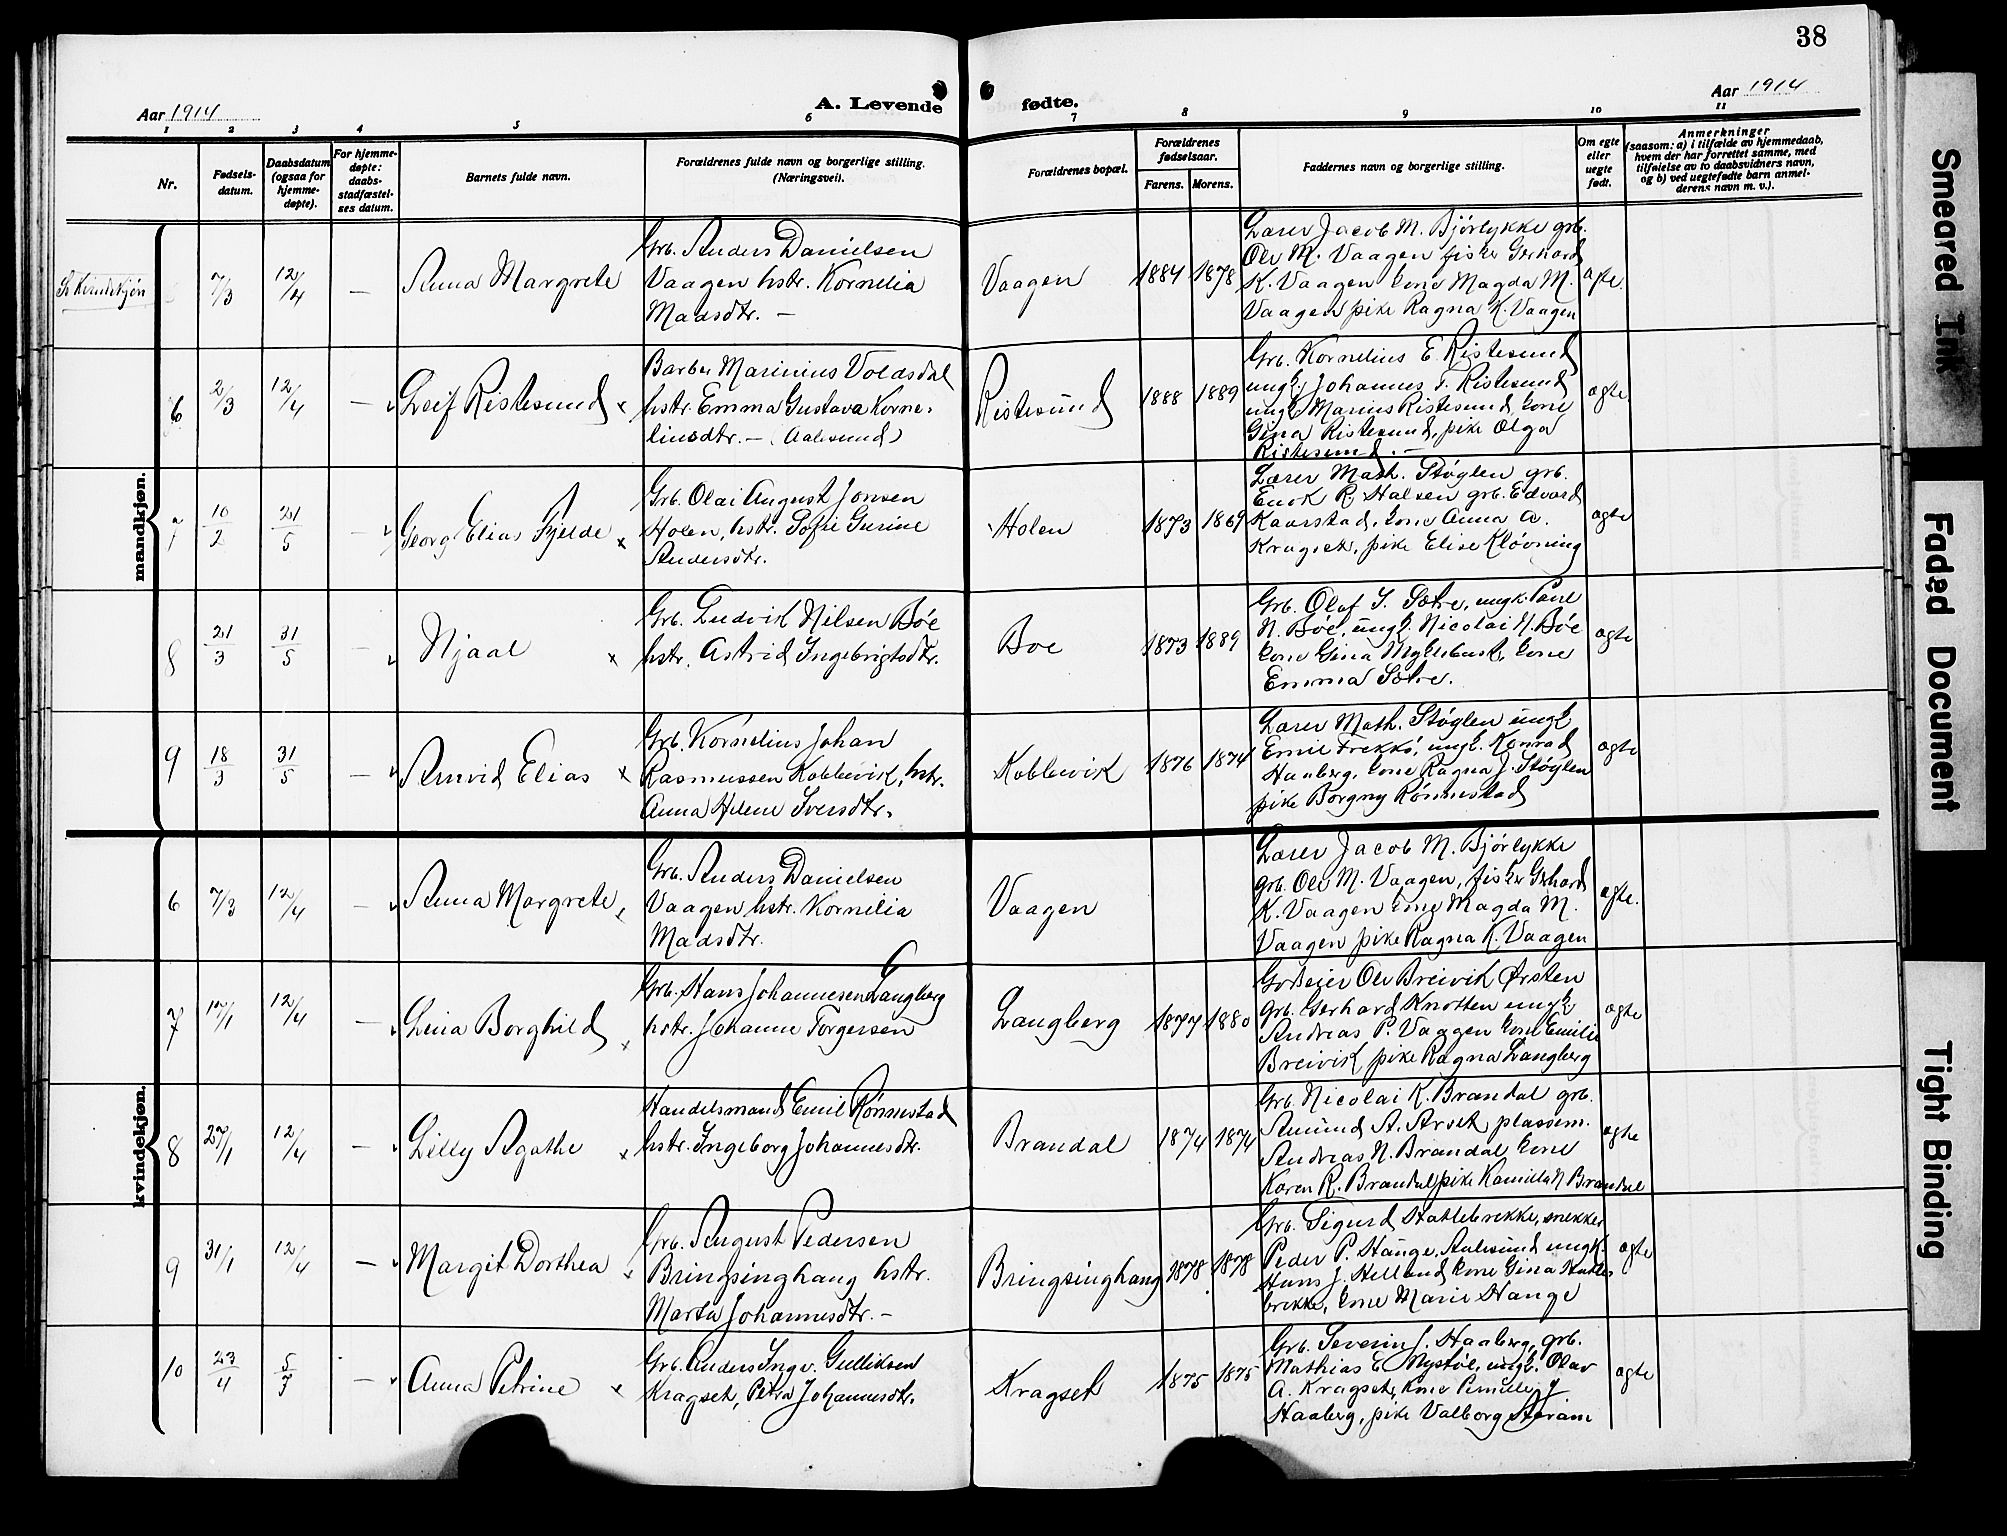 38
Aar 1914
A. Levende fødte.
Aar 1914
1 2 3 4 5 6 7 8 9 10 11
Nr.
Fødsels-
datum.
Daabsdatum
(ogsaa for
hjemme-
døpte).
For hjemme-
døpte:
daabs-
stadfæstel-
ses datum.
Barnets fulde navn.
Forældrenes fulde navn og borgerlige stilling.
(Næringsvei).
Forældrenes bopæl.
Forældrenes
fødselsaar.
Farens. Morens.
Faddernes navn og borgerlige stilling.
Om egte
eller
uegte
født.
Anmerkninger
(saasom: a) i tilfælde av hjemmedaab,
hvem der har forrettet samme, med
tilføielse av to daabsvidners navn,
og b) ved uegtefødte barn anmel-
derens navn m. v.).
mandkjøn.
Se kvindekjøn
7/3
12/4
—
Anna Margrete
Grb. Anders Danielsen
Vaagen hstr. Kornelia
Madsdtr. —
Vaagen
1884
1878
Lærer Jacob M. Bjørlykke grb.
Ole M. Vaagen fisker Gerhard
K. Vaagen kone Magda M.
Vaagen pike Ragna K. Vaagen
egte
6
2/3
12/4
—
Leif Ristesund
Barber Marinius Voldsdal
hstr. Emma Gustava Korne-
liusdtr. — (Aalesund)
Ristesund
1888
1889
Grb. Kornelius E. Ristesund
ungk. Johannes F. Ristesund
ungk. Marius Ristesund, kone
Gina Ristesund, pike Olga
Ristesund. —
egte
7
10/2
21/5
—
Georg Elias Fjelde
Grb. Olai August Jonsen
Holen, hstr. Sofie Gurine
Andersdtr.
Holen
1873
1869
Lærer Math. Støylen grb.
Enok R. Halsen grb. Edvard
Kaarstad, kone Anna A.
Kragset, pike Elise Kløvning
egte
8
21/3
31/5
—
Njaal
Grb. Ludvik Nilsen Bøe
hstr. Astrid Ingebrigtsdtr.
Boe
1873
1889
Grb. Olaf S. Sætre, ungk. Paul
N. Bøe, ungk. Nicolai N. Bøe
kone Gina Myklebust, kone
Emma Sætre.
egte
9
18/3
31/5
—
Arnvid Elias
Grb. Kornelius Johan
Rasmussen Koblevik, hstr.
Anna Helene Iversdtr.
Koblevik
1876
1874
Lærer Math. Støylen ungk
Emil Frekkø, ungk. Konrad
Haaberg, kone Ragna J. Støylen
pike Borgny Rønnestad
egte
kvindekjøn.
6
7/3
12/4
—
Anna Margrete
Grb. Anders Danielsen
Vaagen hstr. Kornelia
Madsdtr.
Vaagen
Lærer Jacob M. Bjørlykke
grb. Ole M. Vaagen, fisker Gerhard
K. Vaagen kone Magda M.
Vaagen pike Ragna K. Vaagen
egte.
7
17/1
12/4
—
Lina Borghild
Grb. Hans Johannesen Langberg
hstr. Johanne Torgersen
Langberg
1877
1880
Ole Breivik Ørsten
grb. Gerhard Knotten ungk.
Andreas P. Vaagen kone Emilie
Breivik, pike Ragna Langberg
egte
8
27/1
12/4
—
Lilly Agathe
Handelsmand Emil Rønnestad
hstr. Ingeborg Johannesdtr.
Brandal
1874
1874
Grb. Nicolai K. Brandal grb.
Amund A. Arset plassem.
Andreas N. Brandal kone
Karen R. Brandal, pike Kamilla N Brandal
egte
9
31/1
12/4
—
Margit Dorthea
Grb. August Pedersen
Bringsinghaug hstr.
Marta Johannesdtr. —
Bringsinghaug
1878
1878
Grb. Sigurd Hatlebrekke, snekker
Peder P. Hauge, Aalesund ungk.
Hans J. Helland kone Gina Hatle-
brekke, kone Marie Hauge
egte
10
23/4
5/7
—
Anna Petrine
Grb. Anders Ingv. Gulliksen
Kragset, Petra Johannesdtr.
Kragset
1875
1875
Grb. Severin J. Haaberg, grb.
Mathias E. Nystøl, ungk. Olav
A. Kragset, kone Pernille J
Haaberg, pike Valborg
egte
Smeared Ink
Faded Document
Tight Binding